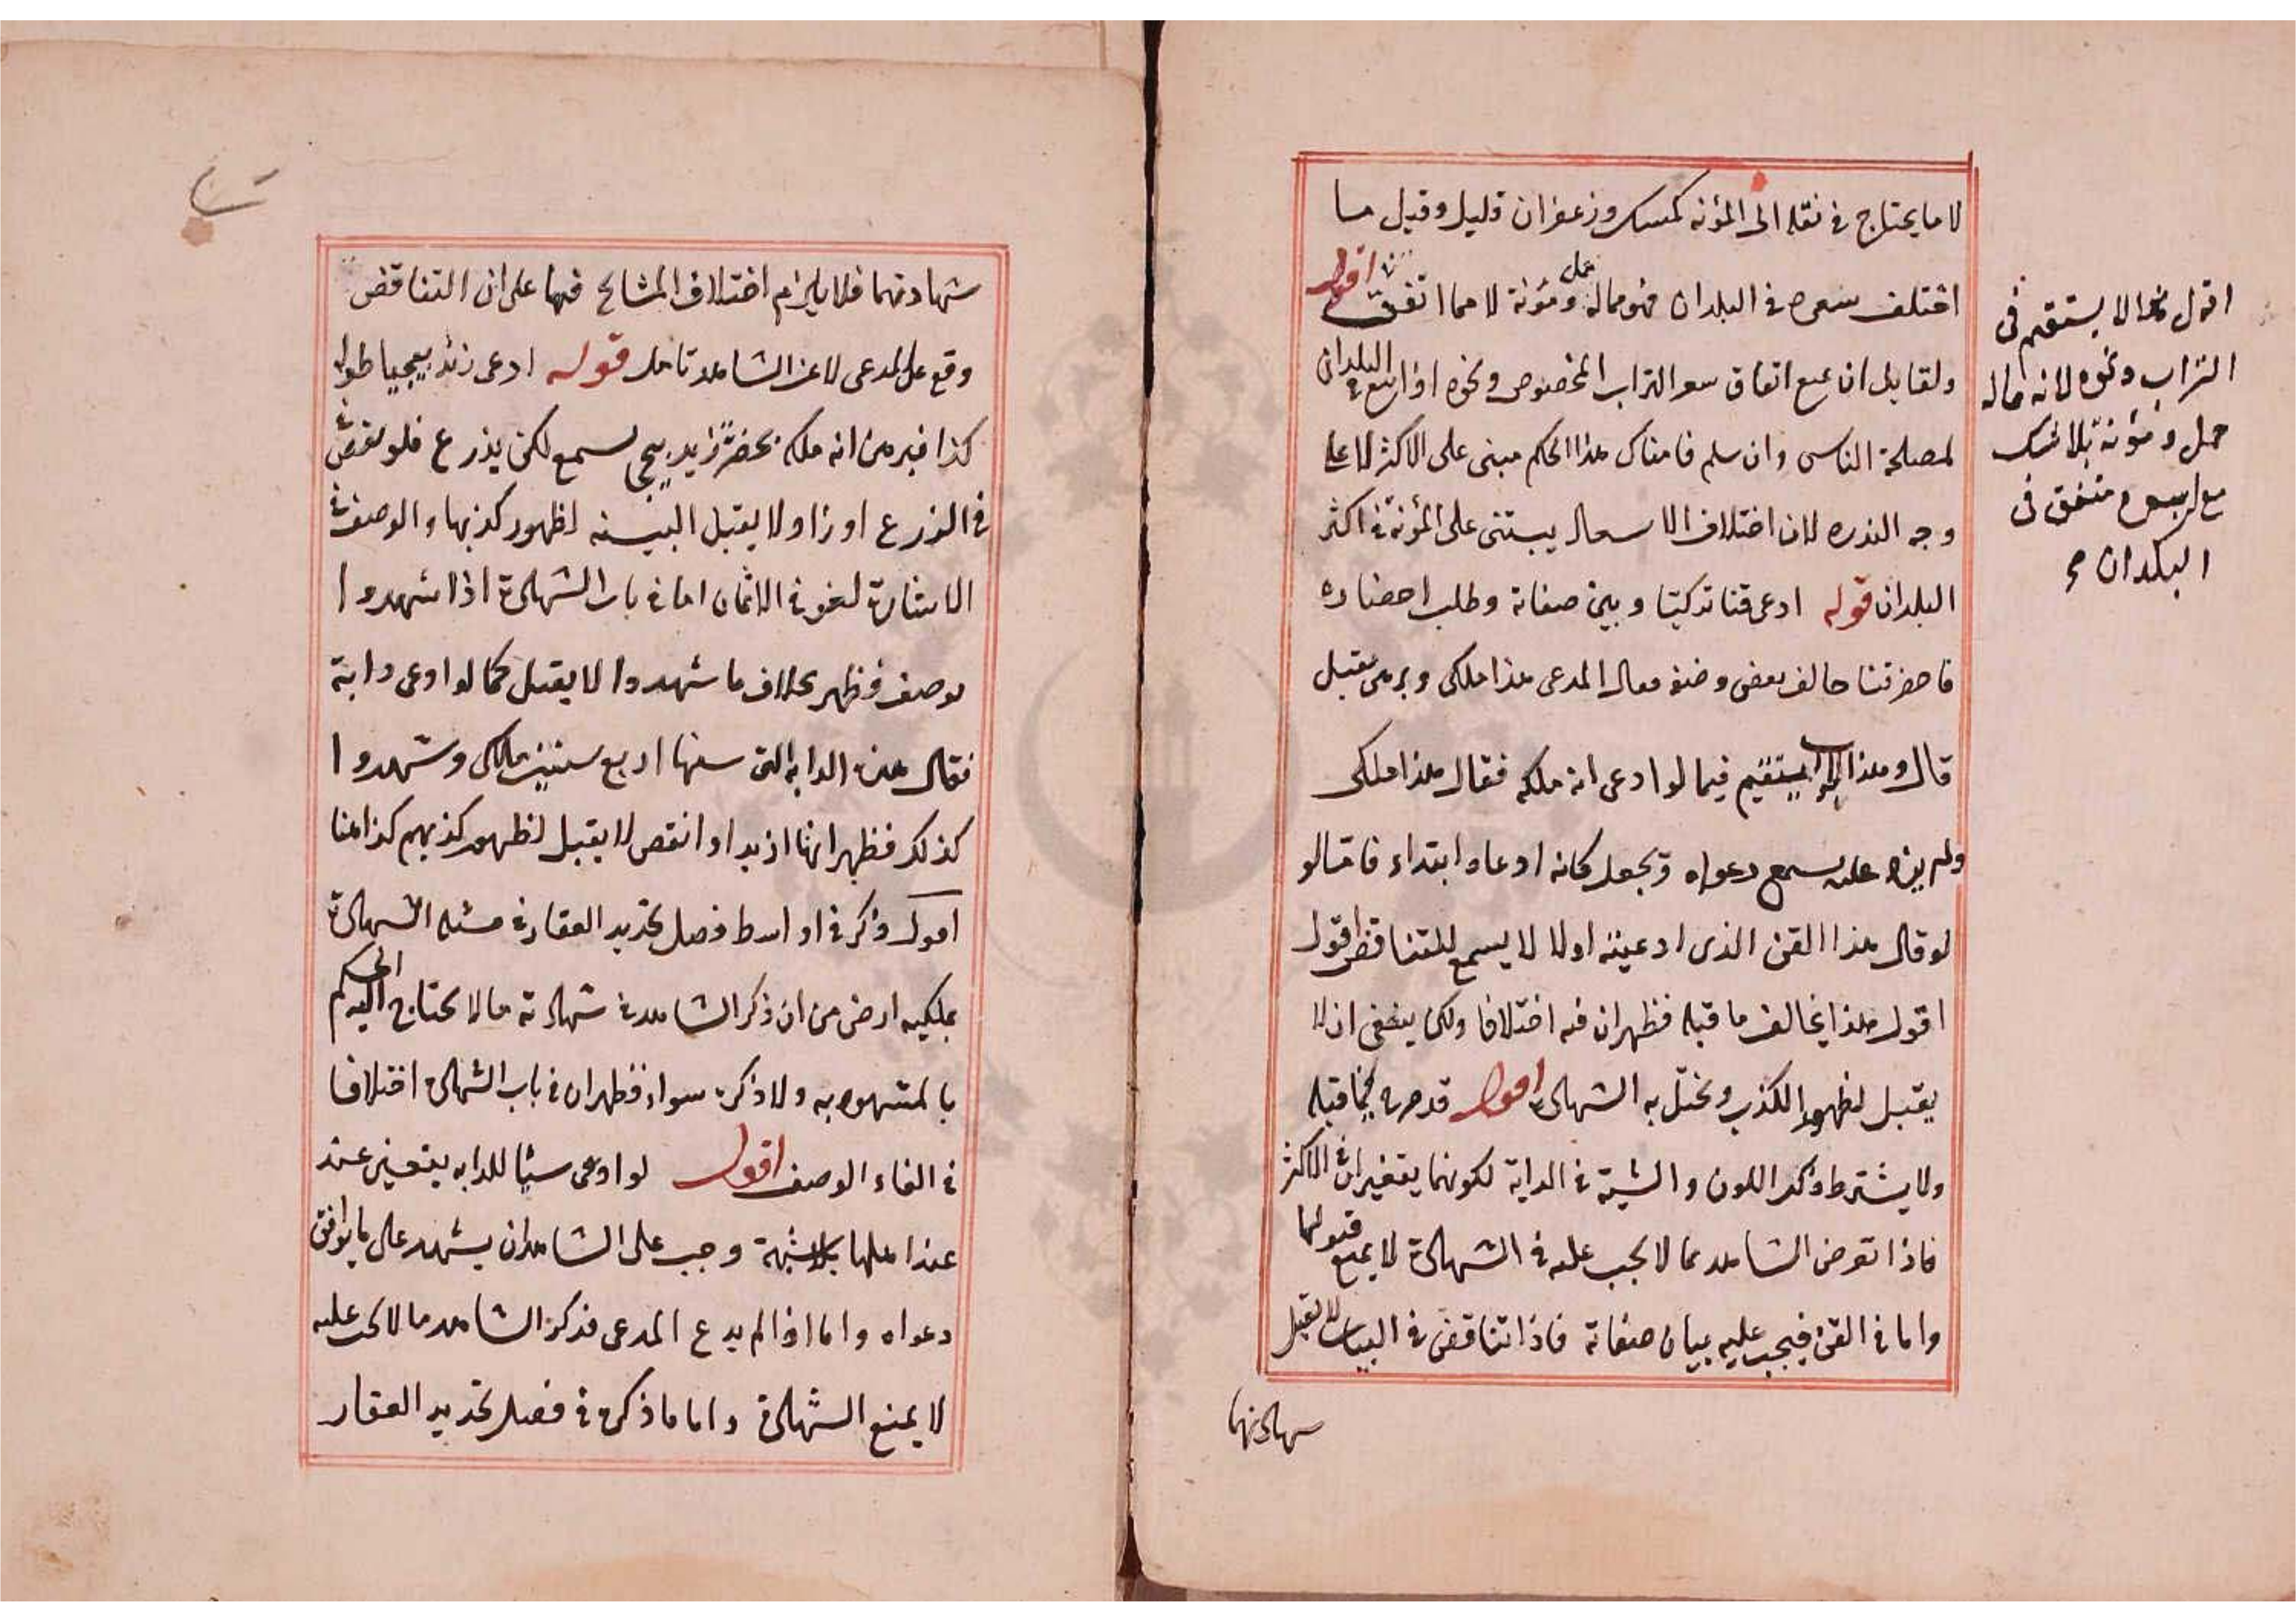 لا ما يحتاج فى نقله الى المؤنه كمسك وزعفران قليل وقيل ما
اختلف سعره فى البلدان فهو مما له حمل ومؤنة لا مما اتفق اقول
ولقايل ان يمنع اتفاق سعر التراب المخصوص ونحوه اذا بيع فى البلدان
لمصلحة الناس وان سلم فامثال هذا الحكم مبنى على الاكثر لا على
وجه الندره لان اختلاف الاسعار يبتنى على المؤنة فى اكثر
البلدان قوله ادعى قنا تركيا وبين صفاته وطلب احضاره
فاحضر قنا خالف بعض وصفه فقال المدعى هذا ملكى وبرهن يقبل
قال وهذا الجواب يستقيم فيما لو ادعى انه ملكه فقال هذا ملكى
ولم يزد عليه يسمع دعواه ويجعل كانه ادعاه ابتداء فاما لو
لو قال هذا القن الذى ادعيته اولا لا يسمع للتناقض اقول
اقول هذا يخالف ما قبله فظهر ان فيه اختلافا ولكن ينبغى ان لا
يقبل لظهور الكذب ويختل به الشهادة اقول قد مر فيما قبله
ولا يشترط ذكر اللون والشية فى الدابة لكونهما يتغيران فى الاكثر
فاذا تعرض الشاهد بما لا يجب عليه فى الشهادة لا يمنع قبولها
واما فى القن فيجب عليه بيان صفاته فاذا تناقض فى البيان لا يقبل
شهادتهما
اقول هذا لا يستقيم فى
التراب ونحوه لانه ماله
حمل ومؤنة بلا شك
مع ان سعره متفق فى
البلدان م
شهادتهما فلا يلزم اختلاف المشايخ فيها على ان التناقض
وقع عن المدعى لا عن الشاهد تامل قوله ادعى زند بيجيا طوله
كذا فبرهن انه ملكه بحضرة زند بيجى يسمع لكن يذرع فلو نقص
فى الذرع او زاد لا يقبل البينه لظهور كذبها والوصف فى
الاشارة لغو فى الاثمان اما فى باب الشهادة اذا شهدوا
بوصف فظهر بخلاف ما شهدوا لا يقبل كما لو ادعى دابة
فقال هذه الدابه التى سنها اربع سنين ملكى وشهدوا
كذلك فظهر انها ازيد او انقص لا يقبل لظهور كذبهم كذا هنا
اقول ذكر فى اواسط فصل تحديد العقار فى مسئله الشهادة
بملكيه ارض من ان ذكر الشاهد فى شهادته ما لا يحتاج اليه الحكم
بالمشهود به ولا ذكره سواء فظهر ان فى باب الشهادة اختلافا
فى الغاء الوصف اقول لو ادعى سنا للدابه يتعين عند
عند اهلها بلا شبهة وجب على الشاهد ان يشهد على ما يوافق
دعواه واما اذا لم يدع المدعى فذكر الشاهد ما لا يجب عليه
لا يمنع الشهادة واما ما ذكره فى فصل تحديد العقار